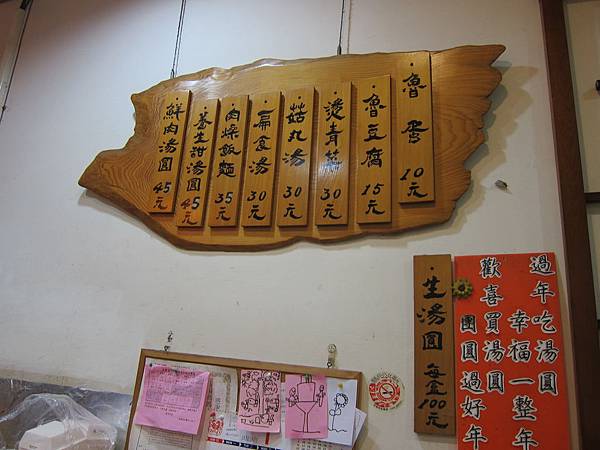 魯蛋 10元
魯豆腐 15元
燙青菜 30元
菇丸湯 30元
扁食湯 30元
肉燥飯麵 35元
養生甜湯圓 45元
鮮肉湯圓 45元
生湯圓 每盒100元
過年吃湯圓
幸福一整年
歡喜買湯圓
團圓過好年